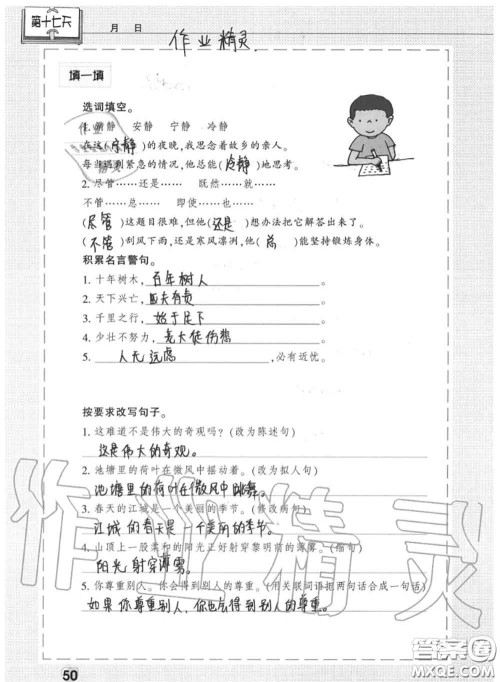 第十七天 月 日
作业精灵
填一填
选词填空。
1. 静 安静 宁静 冷静
在这(宁静)的夜晚,我思念着故乡的亲人。
每当遇到紧急的情况,他总能(冷静)地思考。
2. 尽管……还是…… 既然……就……
不管……总…… 即使……也……
(尽管)这题目很难,但他(还是)想办法把它解答出来了。
(不管)刮风下雨,还是寒风凛冽,他(总)能坚持锻炼身体。
积累名言警句。
1. 十年树木,百年树人。
2. 天下兴亡,匹夫有责。
3. 千里之行,始于足下。
4. 少壮不努力,老大徒伤悲。
5. 人无远虑,必有近忧。
按要求改写句子。
1. 这难道不是伟大的奇观吗?(改为陈述句)
这是伟大的奇观。
2. 池塘里的荷叶在微风中摇动着。(改为拟人句)
池塘里的荷叶在微风中跳舞。
3. 春天的江城是一个美丽的季节。(修改病句)
江城的春天是一个美丽的季节。
4. 山顶上一股柔和的阳光正好射穿黎明前的薄雾。(缩句)
阳光射穿薄雾。
5. 你尊重别人。你会得到别人的尊重。(用关联词语把两句话合成一句话)
如果你尊重别人,你也会得到别人的尊重。
作业精灵
50
答案圈
MXQE.COM